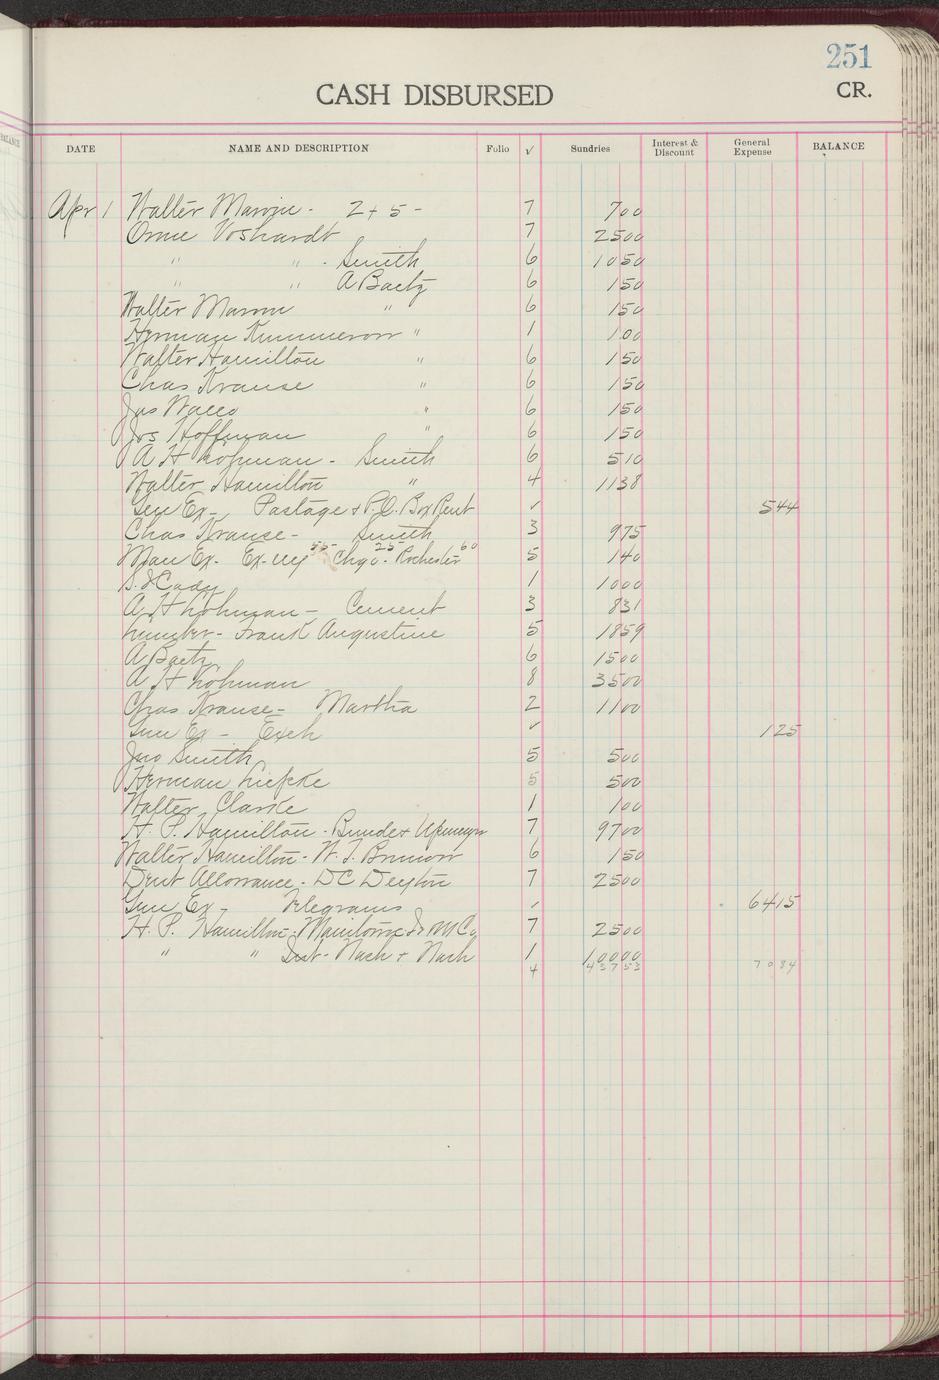 251
CASH DISBURSED CR.
DATE NAME AND DESCRIPTION Folio √ Sundries Interest & Discount General Expense BALANCE
Apr 1 Walter - 2 + 5 - 7 700
Voshardt 7 2500
" " - Smith 6 1050
" " A Baetz 6 150
Walter " 6 150
Herman Kummerow " 1 100
Walter Hamilton " 6 150
Chas Krause " 6 150
Jas " 6 150
Jos Hoffman " 6 150
A H Lohman - Smith 6 510
Walter Hamilton " 4 1138
Gen Ex - Postage + P.O. Box Rent √ 544
Chas Krause - Smith 3 975
Man Ex - 55 25 - Rochester 60 5 140
Cady 1 1000
A H Lohman - Cement 3 831
Lumber - Frank Augustine 5 1859
A Baetz 6 1500
A H Lohman 8 3500
Chas Krause - Martha 2 1100
Gen Ex - Exch √ 125
Jno Smith 5 500
Herman Liefke 5 500
Walter Clarke 1 100
H. P. Hamilton - Bunde + Upmeyer 7 9700
Walter Hamilton - W. J. 6 150
Allowance - DC 7 2500
Gen Ex - Telegrams √ 6415
H. P. Hamilton - Co 7 2500
" " - Nash + Nash 1 10000
4 43753 7084